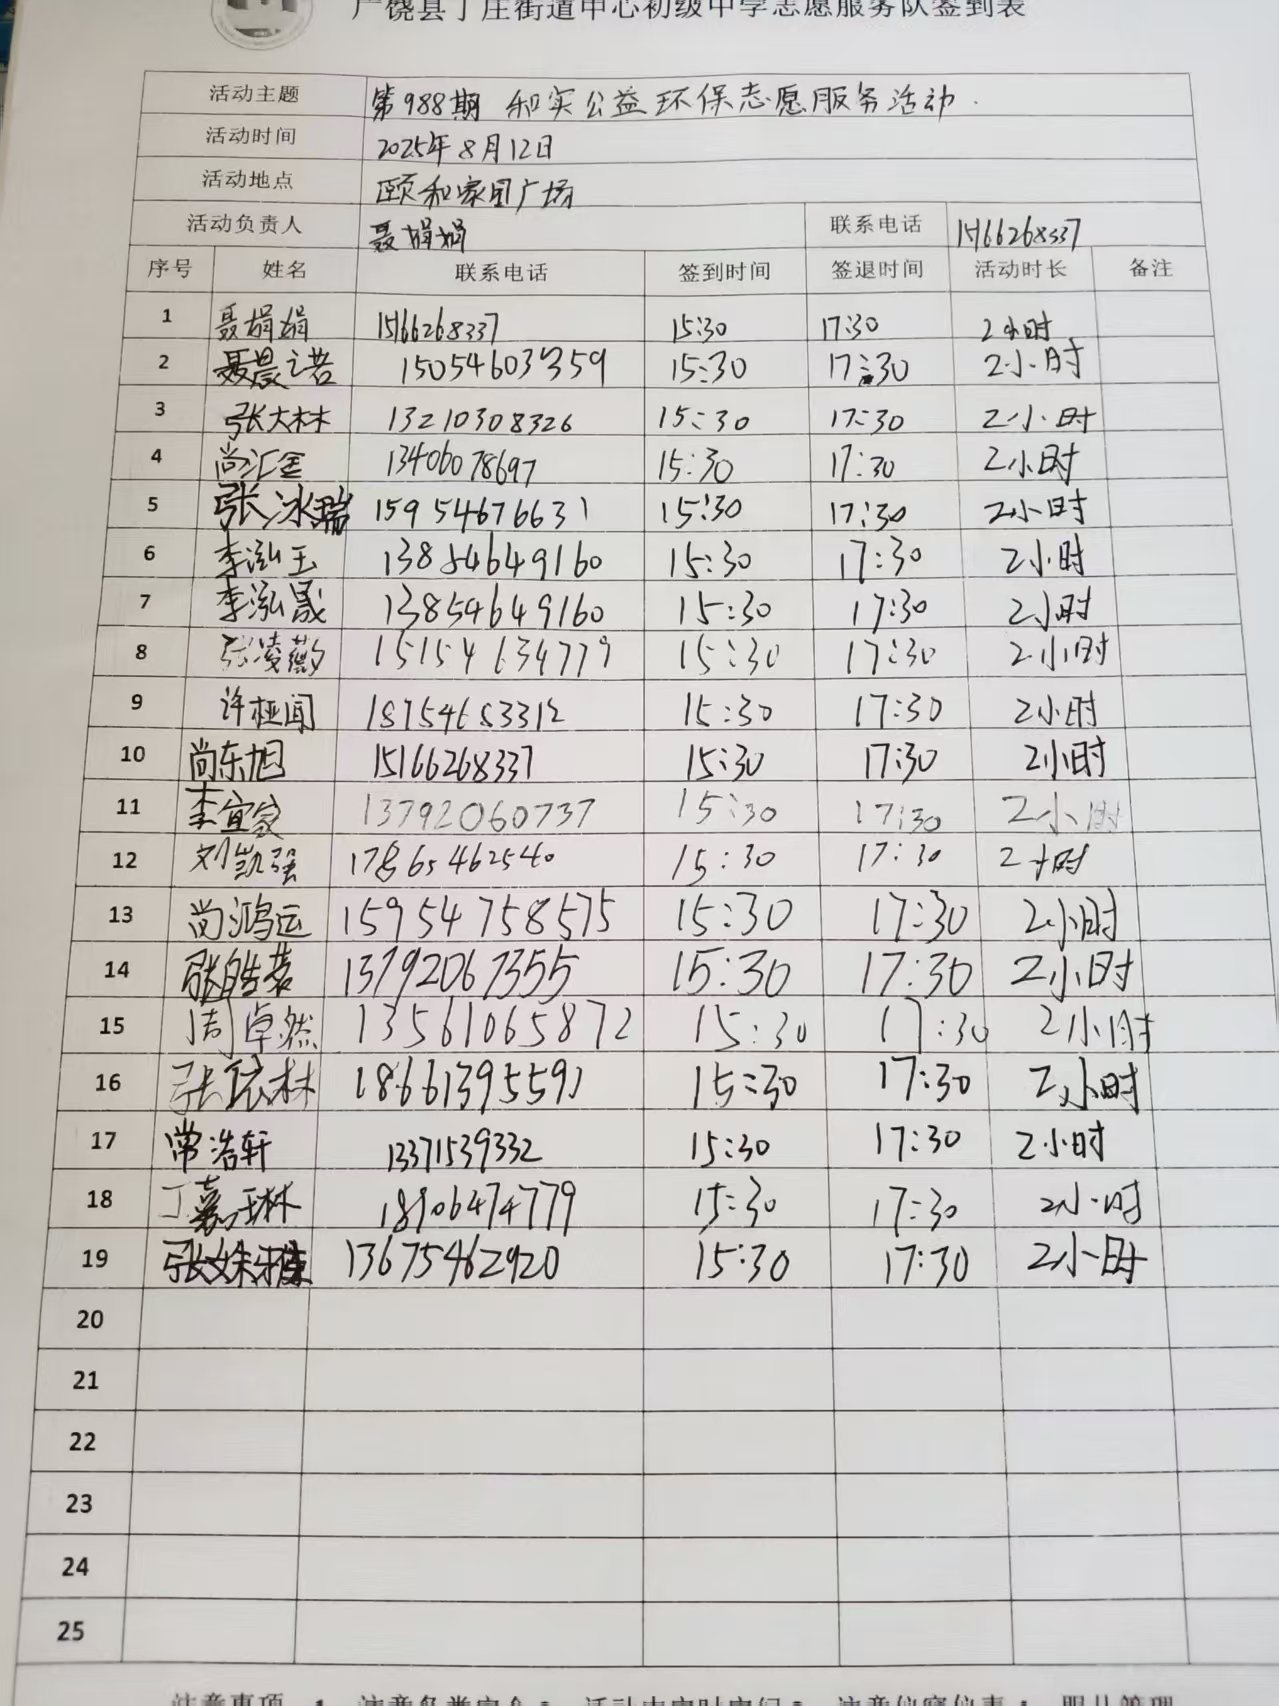 广饶县丁庄街道中心初级中学志愿服务队签到表
活动主题 第988期 和实公益环保志愿服务活动
活动时间 2025年8月12日
活动地点 颐和家园广场
活动负责人 聂娟娟 联系电话 15166268337
序号 姓名 联系电话 签到时间 签退时间 活动时长 备注
1 聂娟娟 15166268337 15:30 17:30 2小时
2 聂晨之若 15054603359 15:30 17:30 2小时
3 张大林 13210308326 15:30 17:30 2小时
4 尚汇金 13406078697 15:30 17:30 2小时
5 张冰瑞 15954676631 15:30 17:30 2小时
6 李泓玉 13854649160 15:30 17:30 2小时
7 李泓晟 13854649160 15:30 17:30 2小时
8 张凌薇 15154634779 15:30 17:30 2小时
9 许桠闻 18754683312 15:30 17:30 2小时
10 尚东旭 15166268337 15:30 17:30 2小时
11 李宜家 13792060737 15:30 17:30 2小时
12 刘凯强 17865462540 15:30 17:30 2小时
13 尚鸿运 15954758575 15:30 17:30 2小时
14 13792067355 15:30 17:30 2小时
15 周卓然 13561065872 15:30 17:30 2小时
16 张依林 18661395591 15:30 17:30 2小时
17 常浩轩 13371539332 15:30 17:30 2小时
18 丁嘉琳 18906474779 15:30 17:30 2小时
19 张姝 13675462920 15:30 17:30 2小时
20
21
22
23
24
25
注意事项